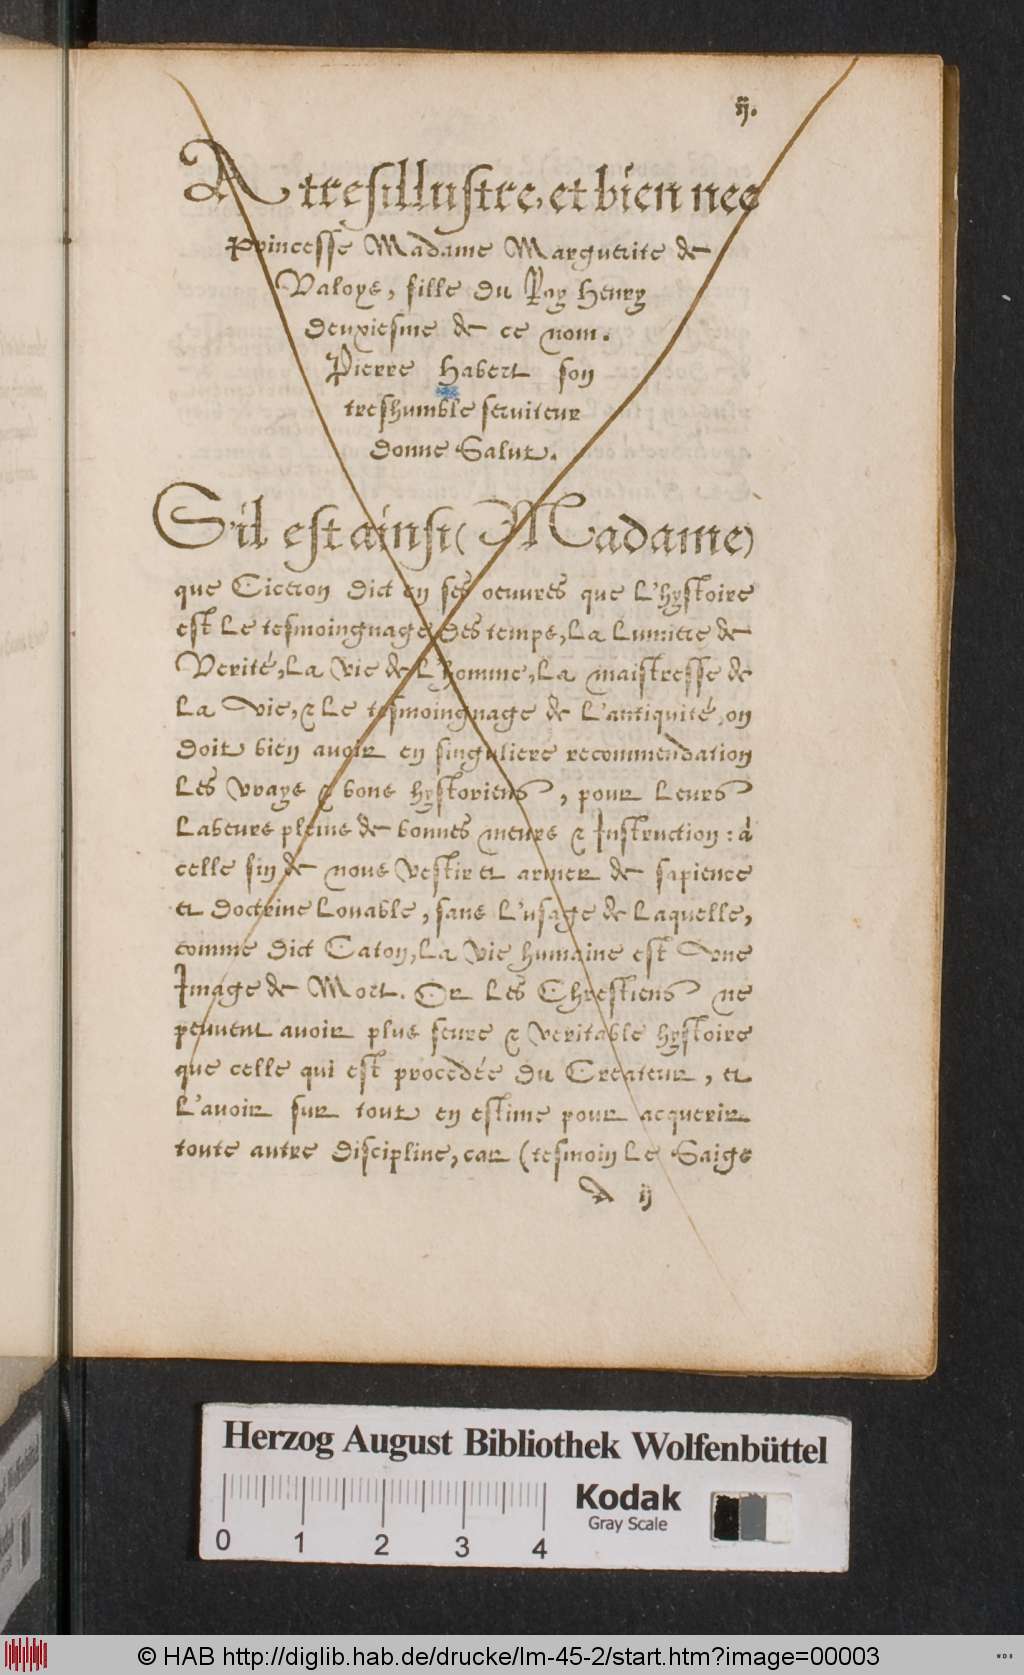 ij.
A tresillustre, et bien nee
Princesse Madame Marguerite de
Valoys, fille du Roy Henry
deuxiesme de ce nom.
Pierre Habert son
treshumble seruiteur
donne Salut.
S'il est ainsi (Madame)
que Ciceron dict en ses oeuures que l'hystoire
est le tesmoingnage des temps, la lumiere de
Verité, la vie de l'homme, la maistresse de
la vie, & le tesmoingnage de l'antiquité, on
doit bien auoir en singuliere recommendation
les vrays & bons hystoriens, pour leurs
labeurs pleins de bonnes meurs & Instruction: à
celle fin de nous vestir et armer de sapience
et doctrine louable, sans l'usage de laquelle,
comme dict Caton, la vie humaine est vne
Image de Mort. Or les Chrestiens ne
peuuent auoir plus seure & veritable hystoire
que celle qui est procedée du Createur, et
l'auoir sur tout en estime pour acquerir
toute autre discipline, car (tesmoin le Saige
A ij
Herzog August Bibliothek Wolfenbüttel
Kodak
Gray Scale
0 1 2 3 4
© HAB http://diglib.hab.de/drucke/lm-45-2/start.htm?image=00003